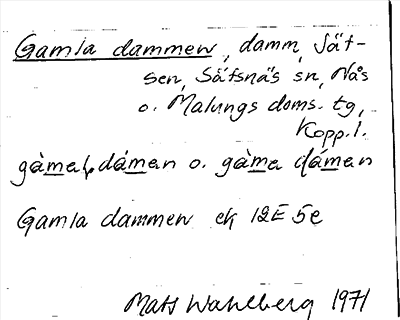 Gamla dammen, damm, Sät-
sen, Säfsnäs sn, Nås
o. Malungs doms. tg,
Kopp. l.
gàmal dámen o. gàma dámen
Gamla dammen ek 12E 5e
Mats Wahlberg 1971